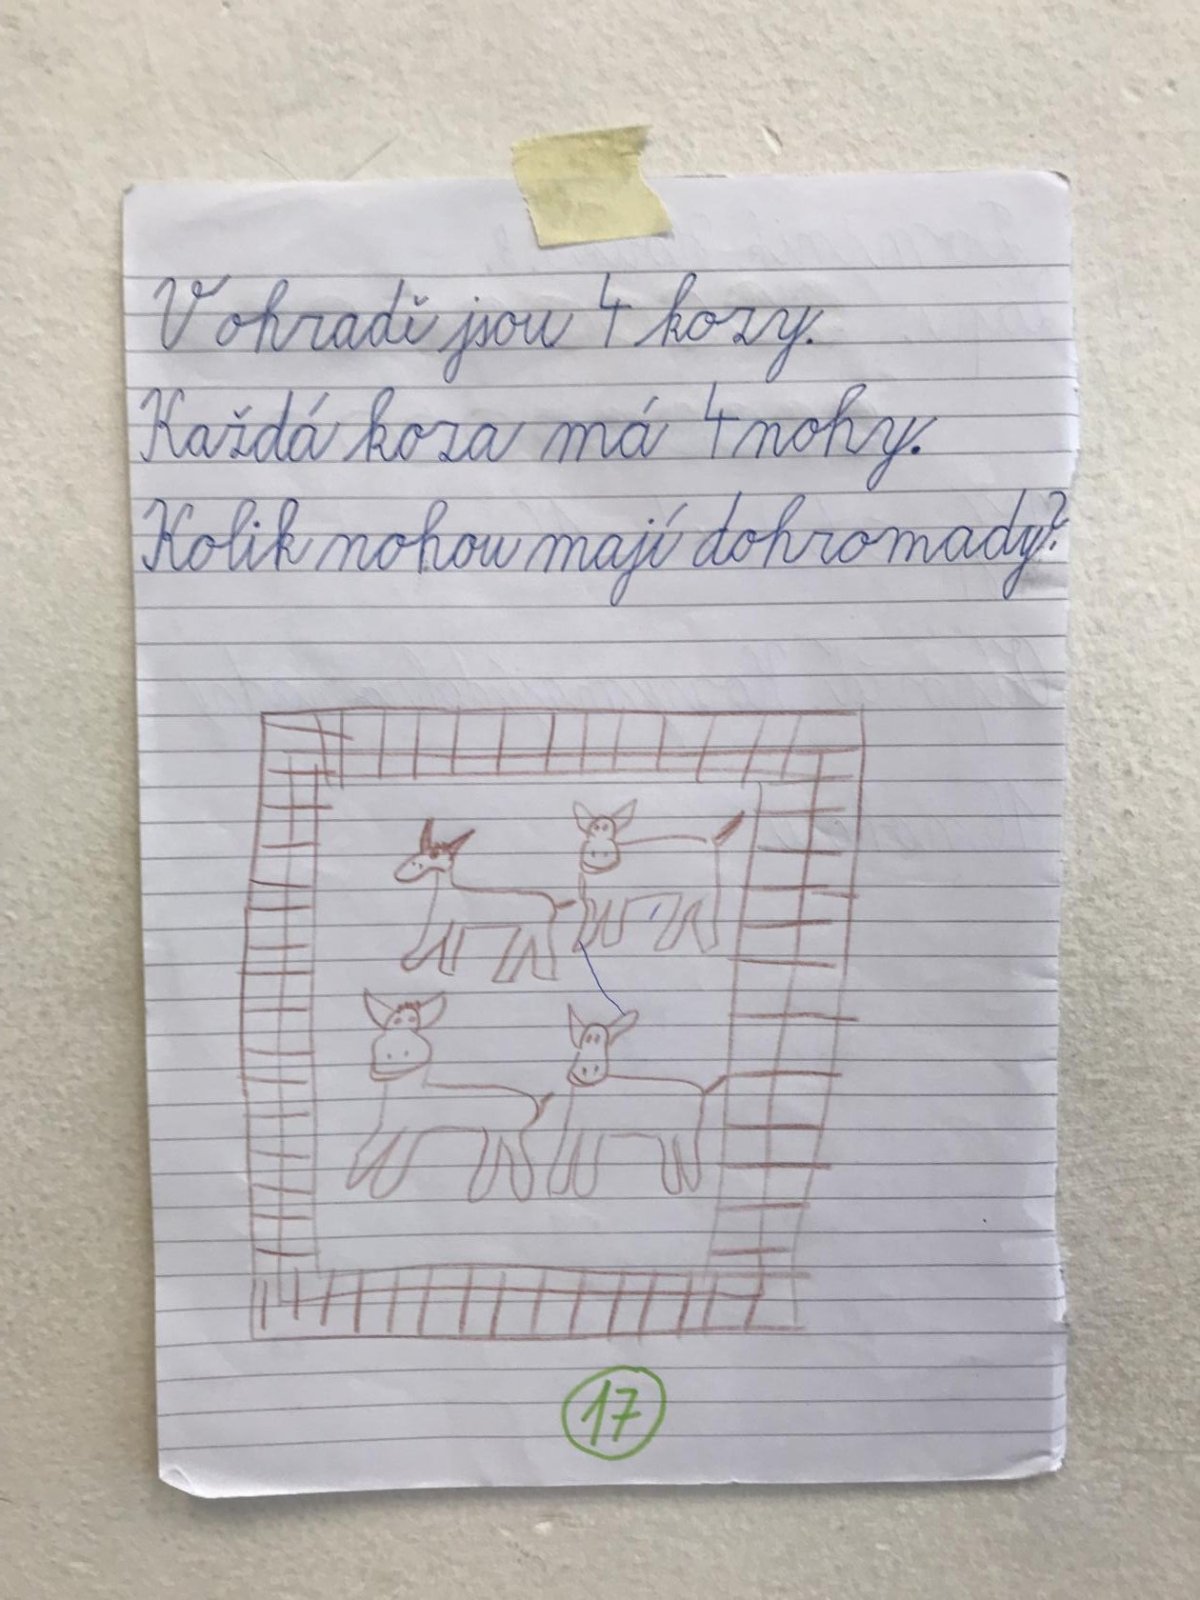 V ohradě jsou 4 kozy.
Každá koza má 4 nohy.
Kolik nohou mají dohromady?
17